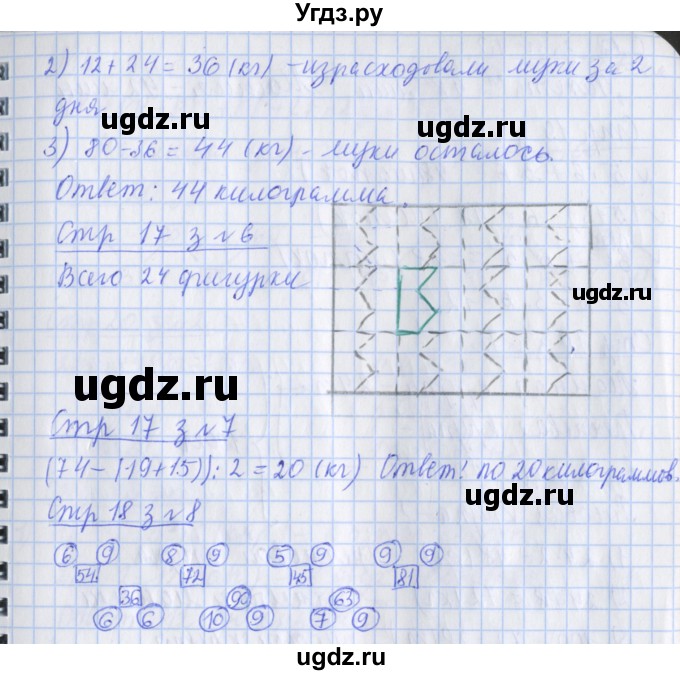 Угдз.ру
2) 12 + 24 = 36 (кг) - израсходовали муки за 2
ugdz.ru
дня
ugdz.ru
3) 80 - 36 = 44 (кг) - муки осталось.
Ответ: 44 килограмма.
Стр 17 з №6
Всего 24 фигурки
ugdz.ru
ugdz.ru
Стр 17 з №7
(74 - (19 + 15)) : 2 = 20 (кг) Ответ: по 20 килограммов.
ugdz.ru
ugdz.ru
Стр 18 з №8
6 9 8 9 5 9 9 9
54 72 45 81
36 90 63
6 6 10 9 7 9
ugdz.ru